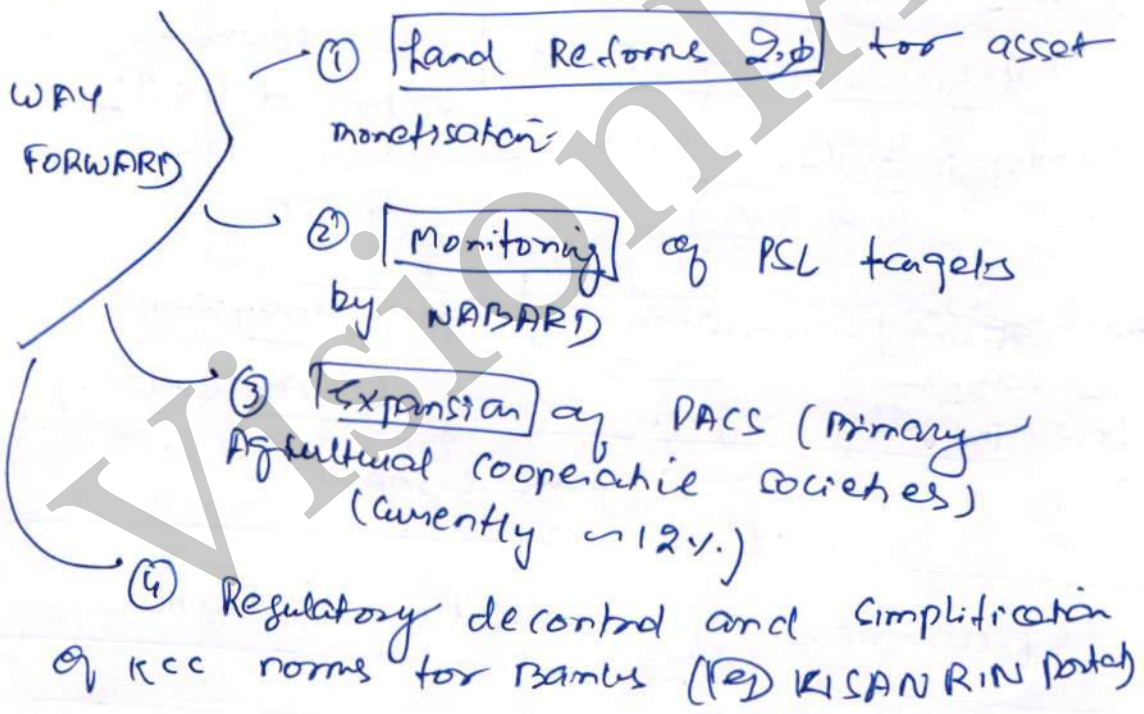 WAY
FORWARD
① Land Reforms 2.0 for asset
monetisation
② Monitoring of PSL targets
by NABARD
③ Expansion of PACS (Primary
Agricultural cooperative societies)
(currently ~12%.)
④ Regulatory decontrol and simplification
of KCC norms for Banks (eg KISAN RIN portal)
Vision